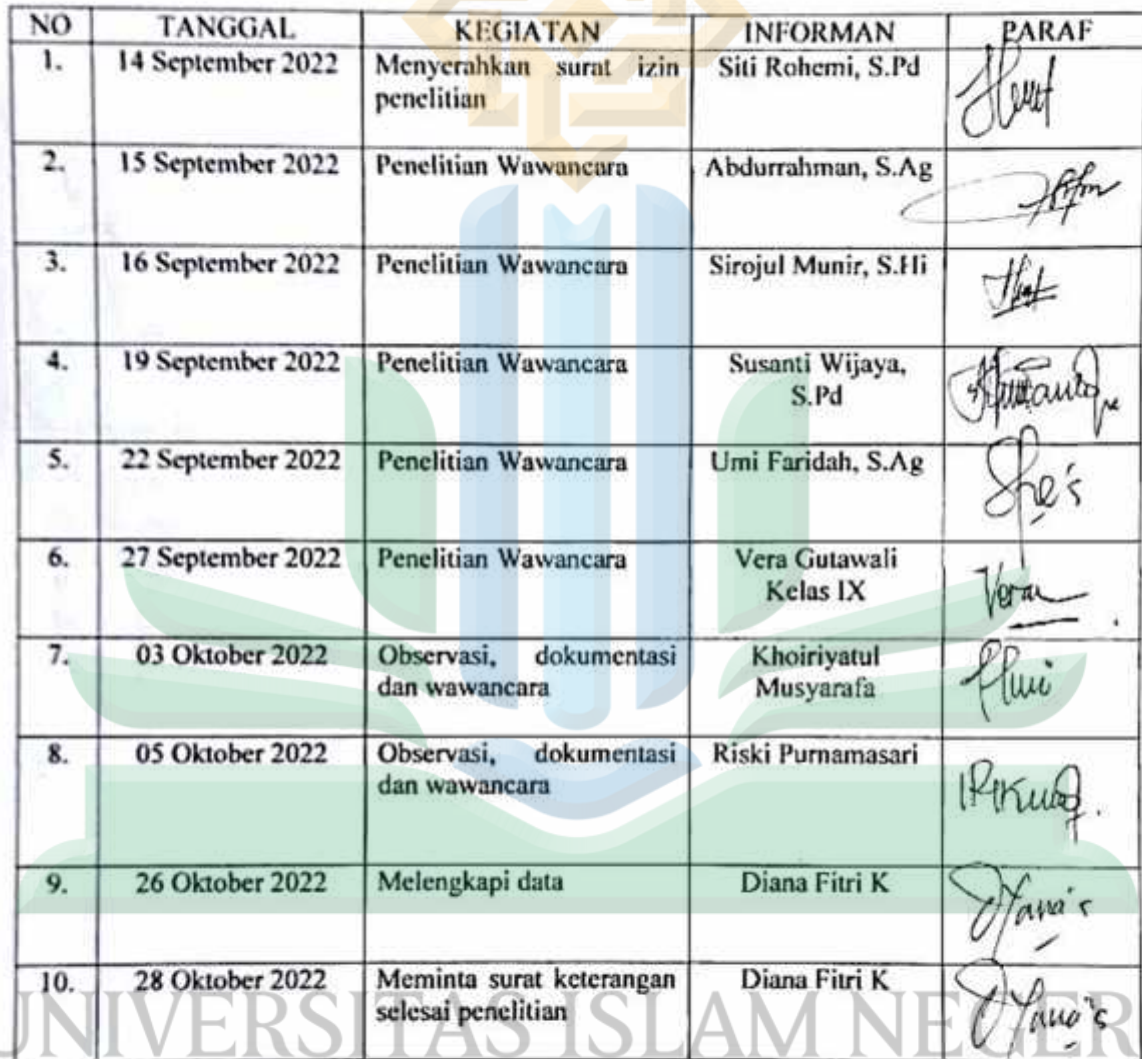 NO TANGGAL KEGIATAN INFORMAN PARAF
1. 14 September 2022 Menyerahkan surat izin Siti Rohemi, S.Pd
penelitian
2. 15 September 2022 Penelitian Wawancara Abdurrahman, S.Ag
3. 16 September 2022 Penelitian Wawancara Sirojul Munir, S.Hi
4. 19 September 2022 Penelitian Wawancara Susanti Wijaya,
S.Pd
5. 22 September 2022 Penelitian Wawancara Umi Faridah, S.Ag
6. 27 September 2022 Penelitian Wawancara Vera Gutawali
Kelas IX
7. 03 Oktober 2022 Observasi, dokumentasi Khoiriyatul
dan wawancara Musyarafa
8. 05 Oktober 2022 Observasi, dokumentasi Riski Purnamasari
dan wawancara
9. 26 Oktober 2022 Melengkapi data Diana Fitri K
10. 28 Oktober 2022 Meminta surat keterangan Diana Fitri K
selesai penelitian
UNIVERSITAS ISLAM NEGER